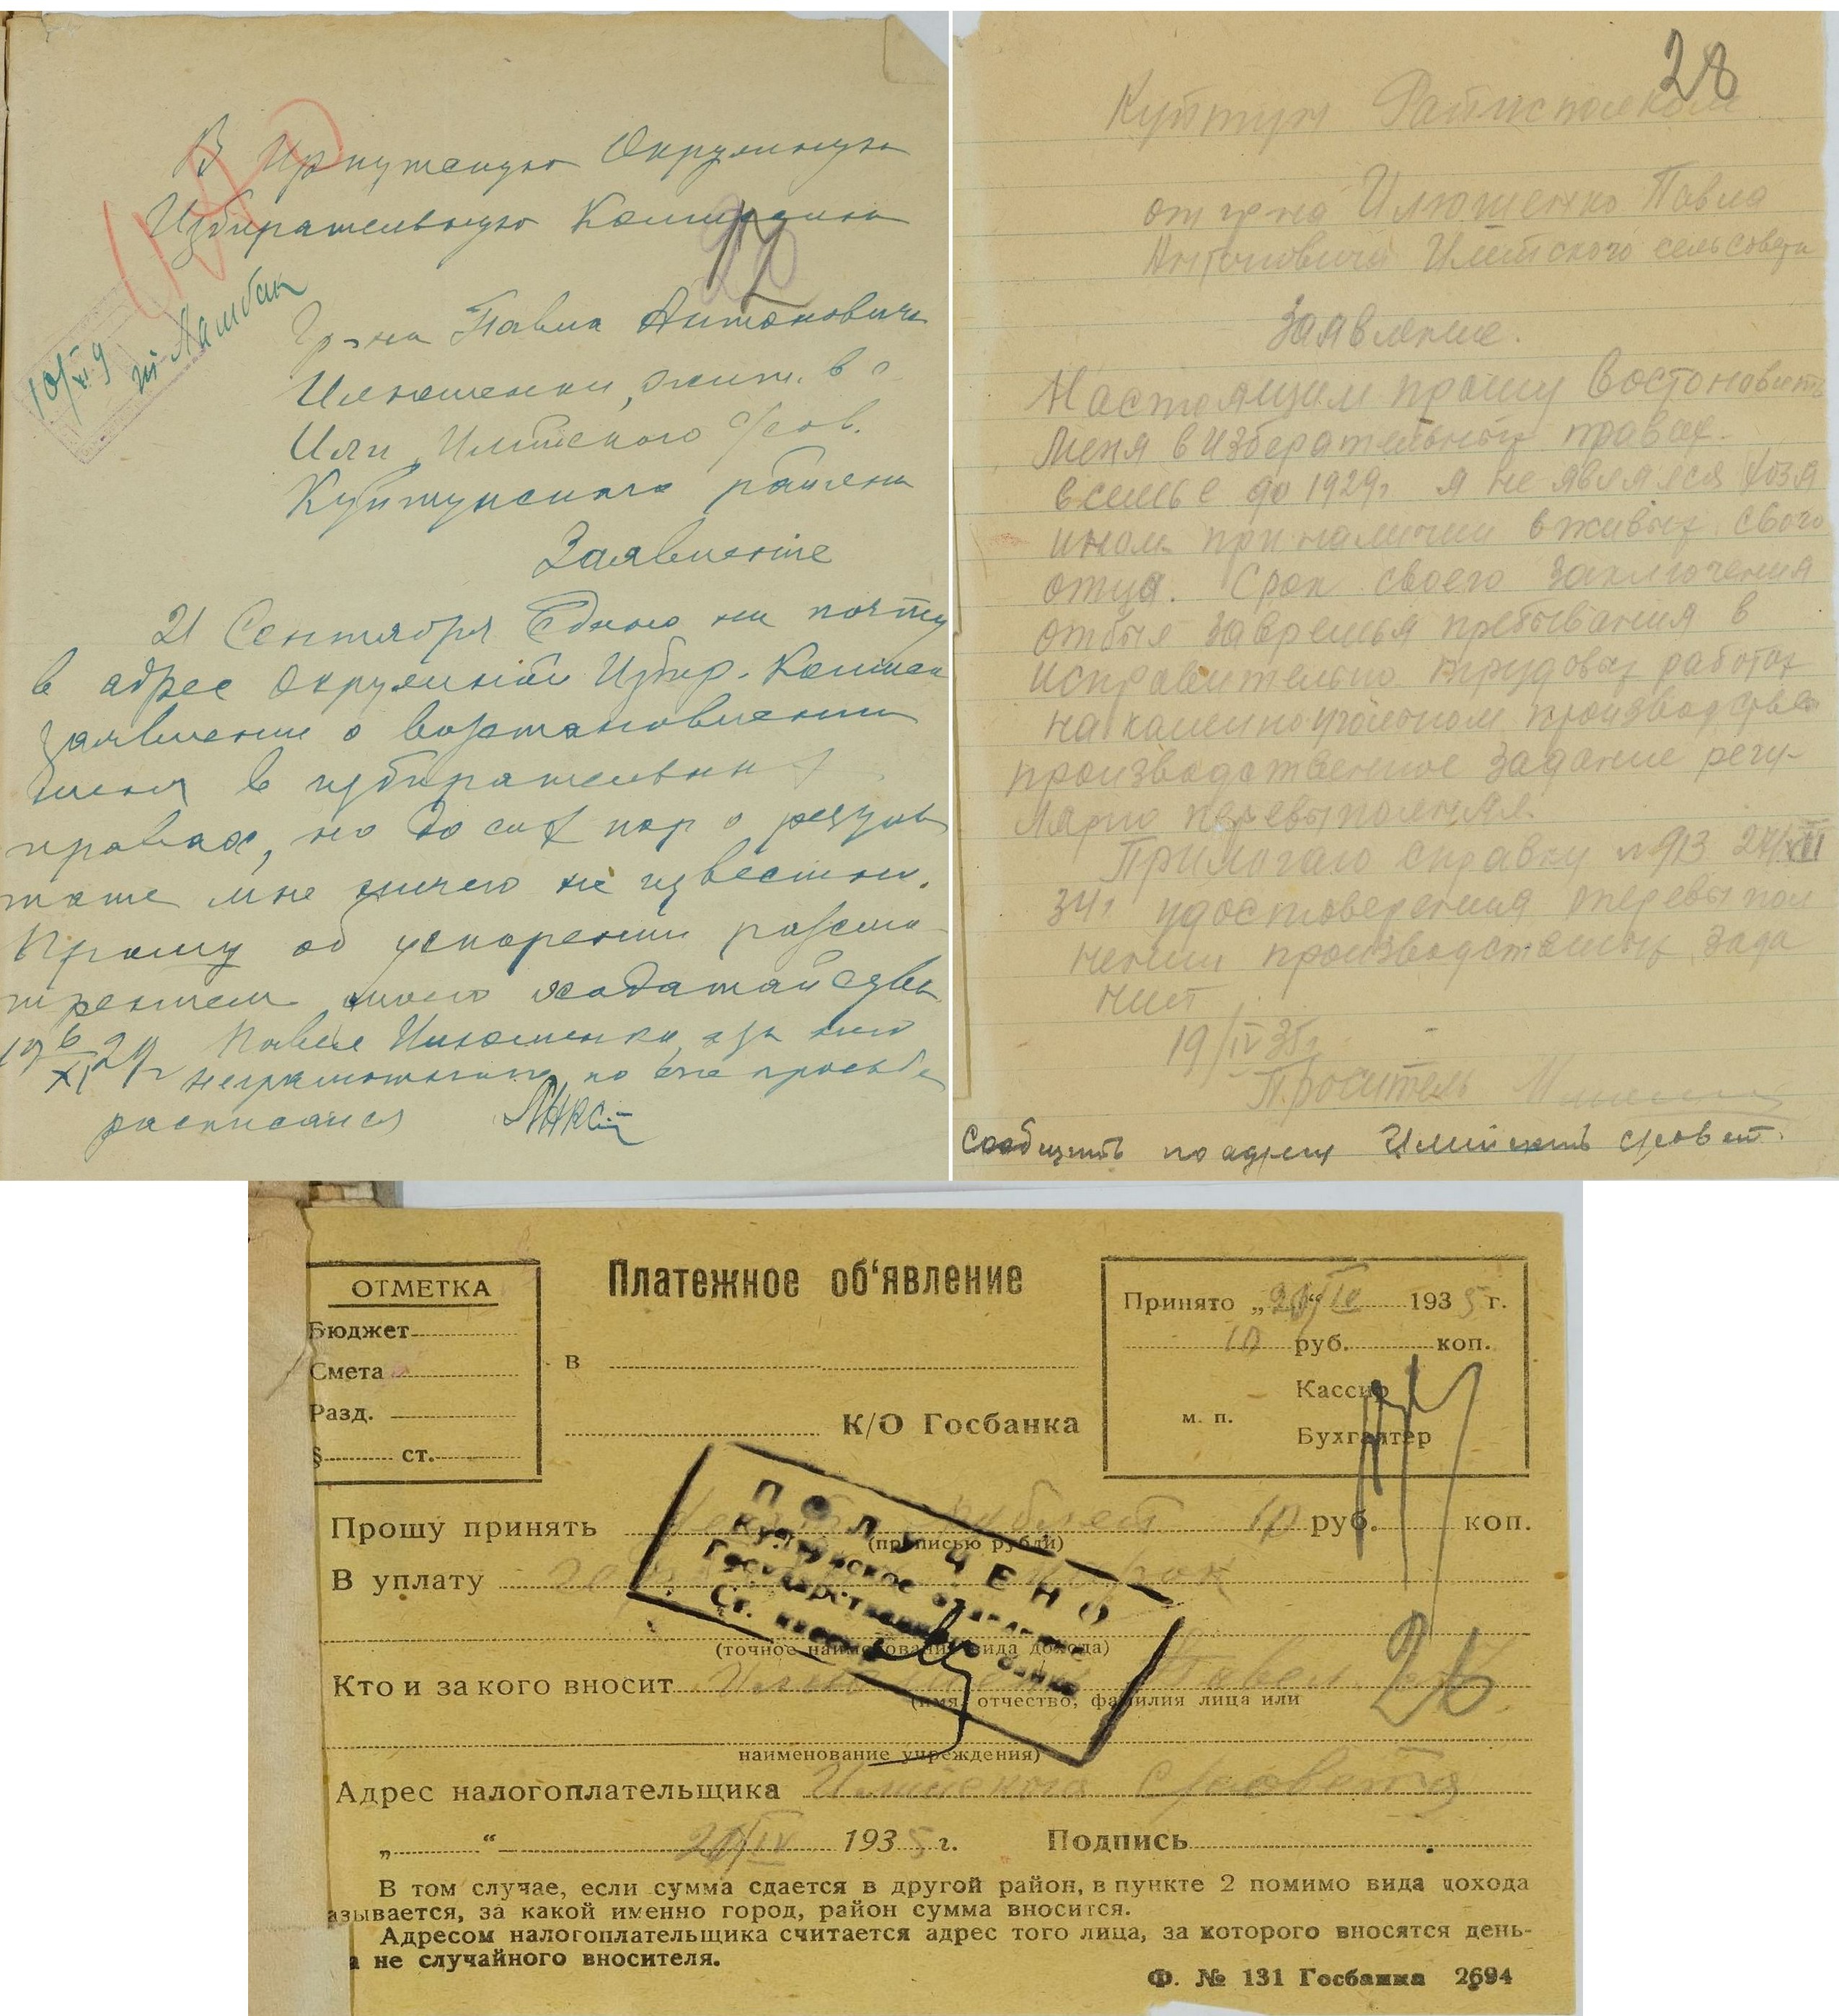 В Иркутскую Окружную
Избирательную Комиссию
Гр-на Павла Антоновича
Илюшенки, жит. в с
Или Илийского с/сов.
Куйтунского района
Заявление
21 Сентября сдано на почту
в адрес Окружной Избир. Комисси
заявление о возстановлении
меня в избирательных
правах, но до сих пор о резуль
тате мне ничего не известно.
Прошу об ускорении разсмо
трением моего ходатайства
19 6/XI 29 Павел Илюшенко, а за него
неграмотного по его просьбе
расписался
10/XI 9
28
Куйтун Райисполком
от гр-на Илюшенко Павла
Антоновича Илийского сельсовета
Заявление.
Настоящим прошу востоновить
меня в избератольных правах.
в семье до 1929г я не являлся хозя
ином при наличии в живых своего
отца. Срок своего заключения
отбыл за время пребывания в
исправительно трудовых работах
на каменноугольном производстве
производственное задание регу-
лярно перевыполнял.
Прилогаю справку № 913 24/XII
34г удостоверения о перевыпол
нении производственных зада
ний
19/IV 35г.
Проситель
Сообщить по адресу Илийский с/совет.
ОТМЕТКА
Бюджет
Смета
Разд.
§ ст.
Платежное об‘явление
в
К/О Госбанка
Принято „20/IV“ 1935 г.
10 руб. коп.
Кассир
м. п.
Бухгалтер
Прошу принять рублей 10 руб. коп.
(прописью рубли)
В уплату
(точное наименование вида дохода)
Кто и за кого вносит Илюшенко Павел
(имя, отчество, фамилия лица или
26
наименование учреждения)
Адрес налогоплательщика Илийского с/совета
„ “ 20/IV 1935 г. Подпись
ПОЛУЧЕНО
Куйтунское отделение
Государственного банка
Ст.
В том случае, если сумма сдается в другой район, в пункте 2 помимо вида дохода
азывается, за какой именно город, район сумма вносится.
Адресом налогоплательщика считается адрес того лица, за которого вносятся день-
а не случайного вносителя.
Ф. № 131 Госбанка 2694